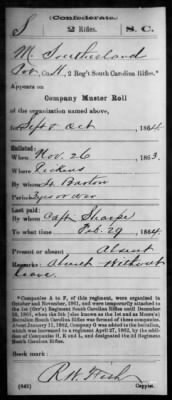 (Confederate.)
S 2 Rifles. S. C.
M. Southerland
Pvt, Co. H, 2 Reg't South Carolina Rifles.*
Appears on
Company Muster Roll
of the organization named above,
for Sept & Oct, 1864.
Enlisted:
When Nov. 26, 1863.
Where Pickens
By whom Barton
Period 3 yrs or war
Last paid:
By whom Capt Sharpe
To what time Feb. 29, 1864.
Present or absent Absent
Remarks: Absent Without
leave.
*Companies A to F, of this regiment, were organized in
October and November, 1861, and were temporarily attached
to the 1st (Orr's) Regiment South Carolina Rifles until December
About January 11, 1862, Company G was added to the battalion,
which was increased to a regiment April 27, 1862, by the addi-
tion of Companies H, I and K, and designated the 2d Regiment
South Carolina Rifles.
Book mark:
R. W.
(642) Copyist.